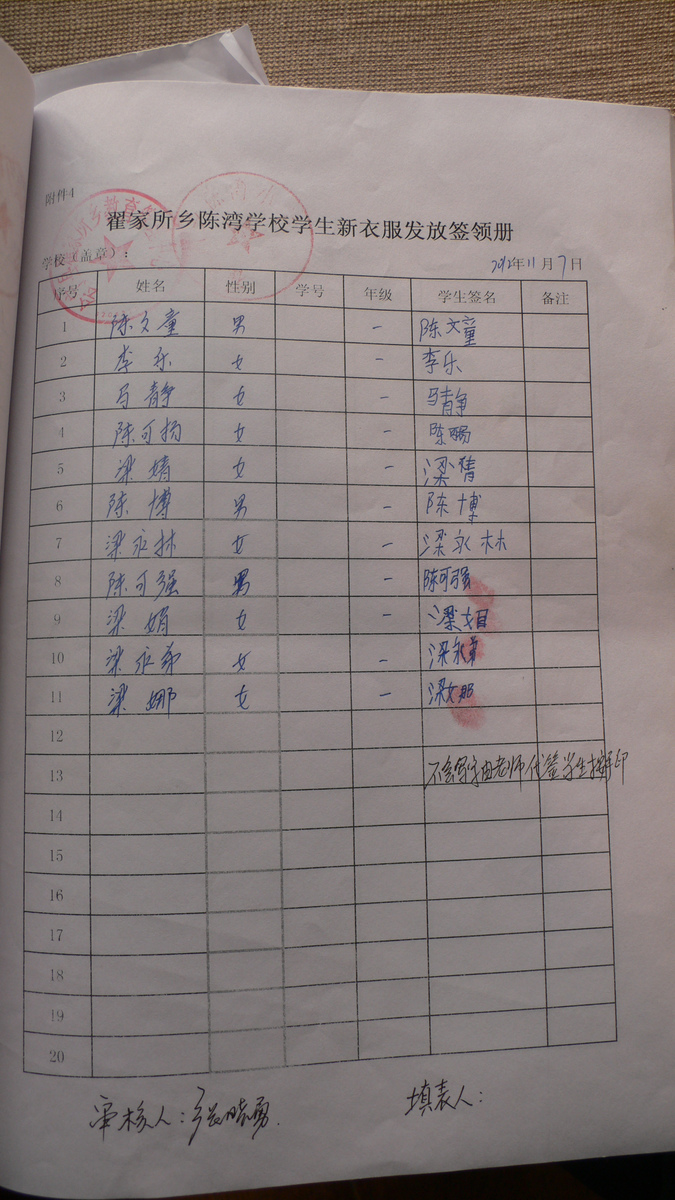 附件4
翟家所乡陈湾学校学生新衣服发放签领册
学校（盖章）： 2012年11月7日
序号 姓名 性别 学号 年级 学生签名 备注
1 陈文童 男 一 陈文童
2 李乐 女 一 李乐
3 马静 女 一 马静
4 陈可扬 女 一 陈
5 梁婧 女 一 梁婧
6 陈博 男 一 陈博
7 梁永林 女 一 梁永林
8 陈可强 男 一 陈可强
9 梁娟 女 一 梁娟
10 梁永弟 女 一 梁永弟
11 梁娜 女 一 梁娜
12
13 不会写字由老师代签学生按手印
14
15
16
17
18
19
20
审核人：张晓勇. 填表人：